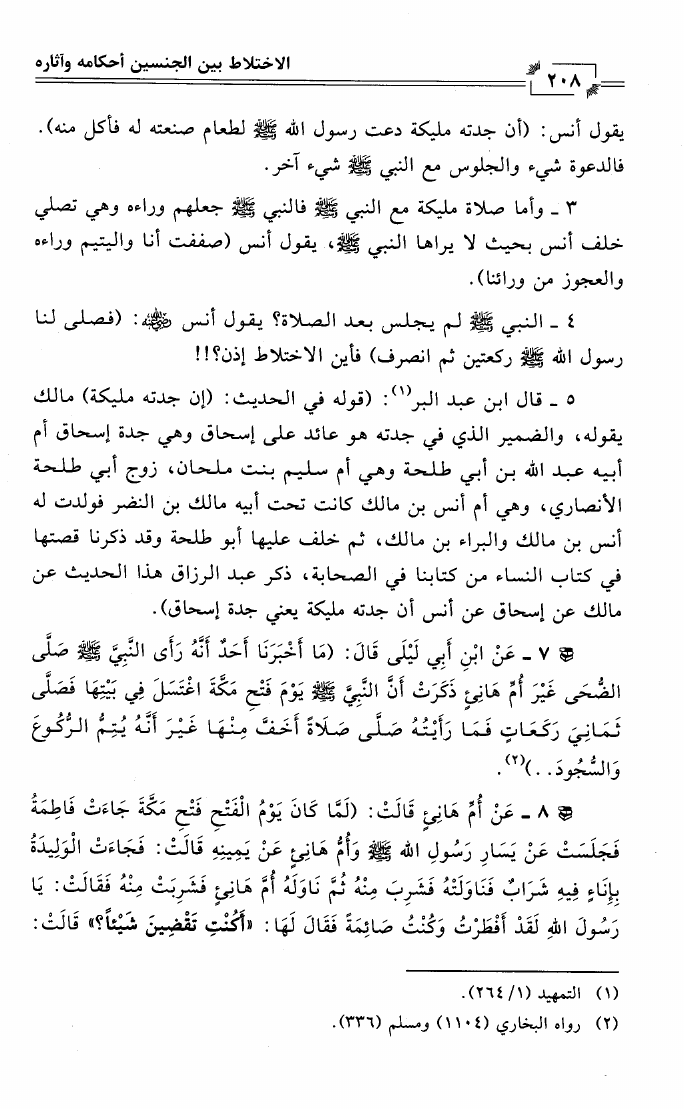 الاختلاط بين الجنسين أحكامه وآثاره
٢٠٨
يقول أنس: (أن جدته مليكة دعت رسول الله ﷺ لطعام صنعته له فأكل منه).
فالدعوة شيء والجلوس مع النبي ﷺ شيء آخر.
٣ ـ وأما صلاة مليكة مع النبي ﷺ فالنبي ﷺ جعلهم وراءه وهي تصلي
خلف أنس بحيث لا يراها النبي ﷺ، يقول أنس (صففت أنا واليتيم وراءه
والعجوز من ورائنا).
٤ ـ النبي ﷺ لم يجلس بعد الصلاة؟ يقول أنس رضي الله عنه: (فصلى لنا
رسول الله ﷺ ركعتين ثم انصرف) فأين الاختلاط إذن؟!!
٥ ـ قال ابن عبد البر(١): (قوله في الحديث: (إن جدته مليكة) مالك
يقوله، والضمير الذي في جدته هو عائد على إسحاق وهي جدة إسحاق أم
أبيه عبد الله بن أبي طلحة وهي أم سليم بنت ملحان، زوج أبي طلحة
الأنصاري، وهي أم أنس بن مالك كانت تحت أبيه مالك بن النضر فولدت له
أنس بن مالك والبراء بن مالك، ثم خلف عليها أبو طلحة وقد ذكرنا قصتها
في كتاب النساء من كتابنا في الصحابة، ذكر عبد الرزاق هذا الحديث عن
مالك عن إسحاق عن أنس أن جدته مليكة يعني جدة إسحاق).
٧ ـ عَنْ ابْنِ أَبِي لَيْلَى قَالَ: (مَا أَخْبَرَنَا أَحَدٌ أَنَّهُ رَأَى النَّبِيَّ ﷺ صَلَّى
الضُّحَى غَيْرَ أُمِّ هَانِئٍ ذَكَرَتْ أَنَّ النَّبِيَّ ﷺ يَوْمَ فَتْحِ مَكَّةَ اغْتَسَلَ فِي بَيْتِهَا فَصَلَّى
ثَمَانِيَ رَكَعَاتٍ فَمَا رَأَيْتُهُ صَلَّى صَلَاةً أَخَفَّ مِنْهَا غَيْرَ أَنَّهُ يُتِمُّ الرُّكُوعَ
وَالسُّجُودَ..)(٢).
٨ ـ عَنْ أُمِّ هَانِئٍ قَالَتْ: (لَمَّا كَانَ يَوْمُ الْفَتْحِ فَتْحِ مَكَّةَ جَاءَتْ فَاطِمَةُ
فَجَلَسَتْ عَنْ يَسَارِ رَسُولِ الله ﷺ وَأُمُّ هَانِئٍ عَنْ يَمِينِهِ قَالَتْ: فَجَاءَتْ الْوَلِيدَةُ
بِإِنَاءٍ فِيهِ شَرَابٌ فَنَاوَلَتْهُ فَشَرِبَ مِنْهُ ثُمَّ نَاوَلَهُ أُمَّ هَانِئٍ فَشَرِبَتْ مِنْهُ فَقَالَتْ: يَا
رَسُولَ اللهِ لَقَدْ أَفْطَرْتُ وَكُنْتُ صَائِمَةً فَقَالَ لَهَا: «أَكُنْتِ تَقْضِينَ شَيْئاً؟» قَالَتْ:
(١) التمهيد (٢٦٤/١).
(٢) رواه البخاري (١١٠٤) ومسلم (٣٣٦).